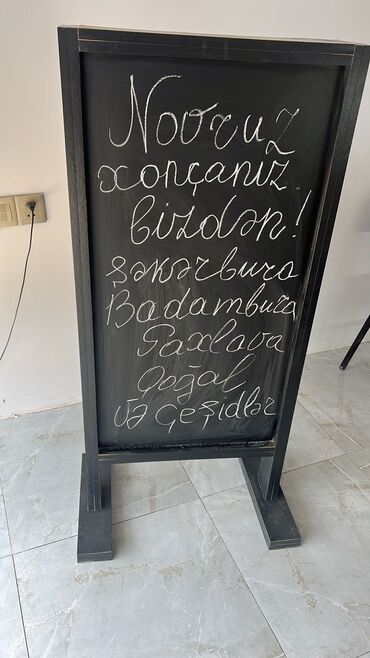 Novruz
xonçanız
bizdən!
şəkərbura
Badambura
Paxlava
Qoğal
və çeşidlər